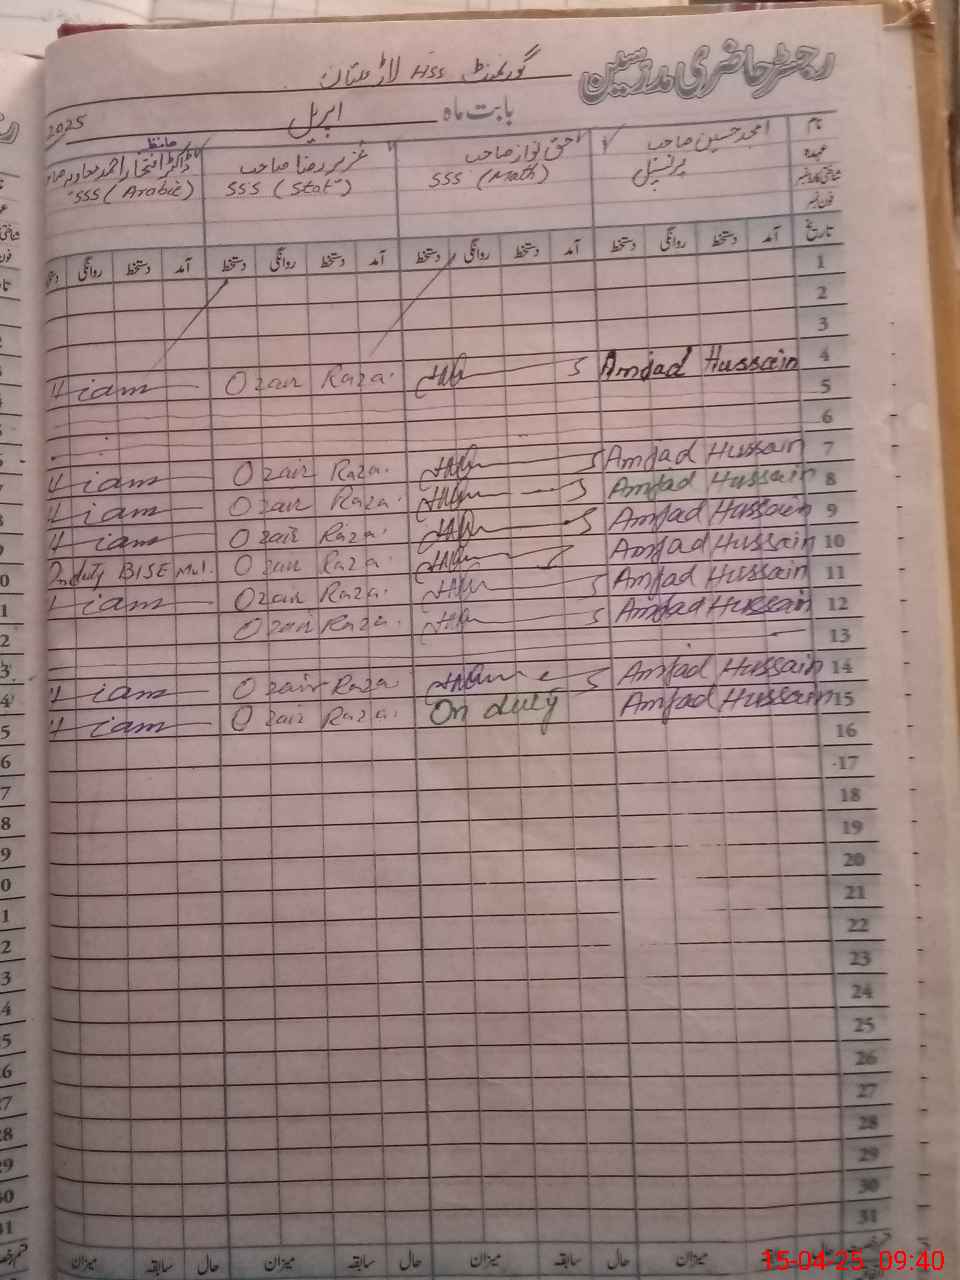 رجسٹر حاضری مدرسین
گورنمنٹ HSS لاڑ ملتان
بابت ماہ اپریل 2025
نام امجد حسین صاحب حق نواز صاحب عزیر رضا صاحب حافظ ڈاکٹر افتخار احمد
عہدہ پرنسپل SSS (Math) SSS (Stat) SSS (Arabic)
شناختی کارڈ نمبر
فون نمبر
تاریخ آمد دستخط روانگی دستخط آمد دستخط روانگی دستخط آمد دستخط روانگی دستخط آمد دستخط روانگی
1
2
3
4 Amjad Hussain Ozair Raza
5
6
7 Amjad Hussain Ozair Raza
8 Amjad Hussain Ozair Raza
9 Amjad Hussain Ozair Raza
10 Amjad Hussain Ozair Raza On duty BISE Mul.
11 Amjad Hussain Ozair Raza
12 Amjad Hussain Ozair Raza
13
14 Amjad Hussain Ozair Raza
15 Amjad Hussain On duty Ozair Raza
16
17
18
19
20
21
22
23
24
25
26
27
28
29
30
31
حال میزان حال سابقہ میزان حال سابقہ میزان
15-04-25 09:40